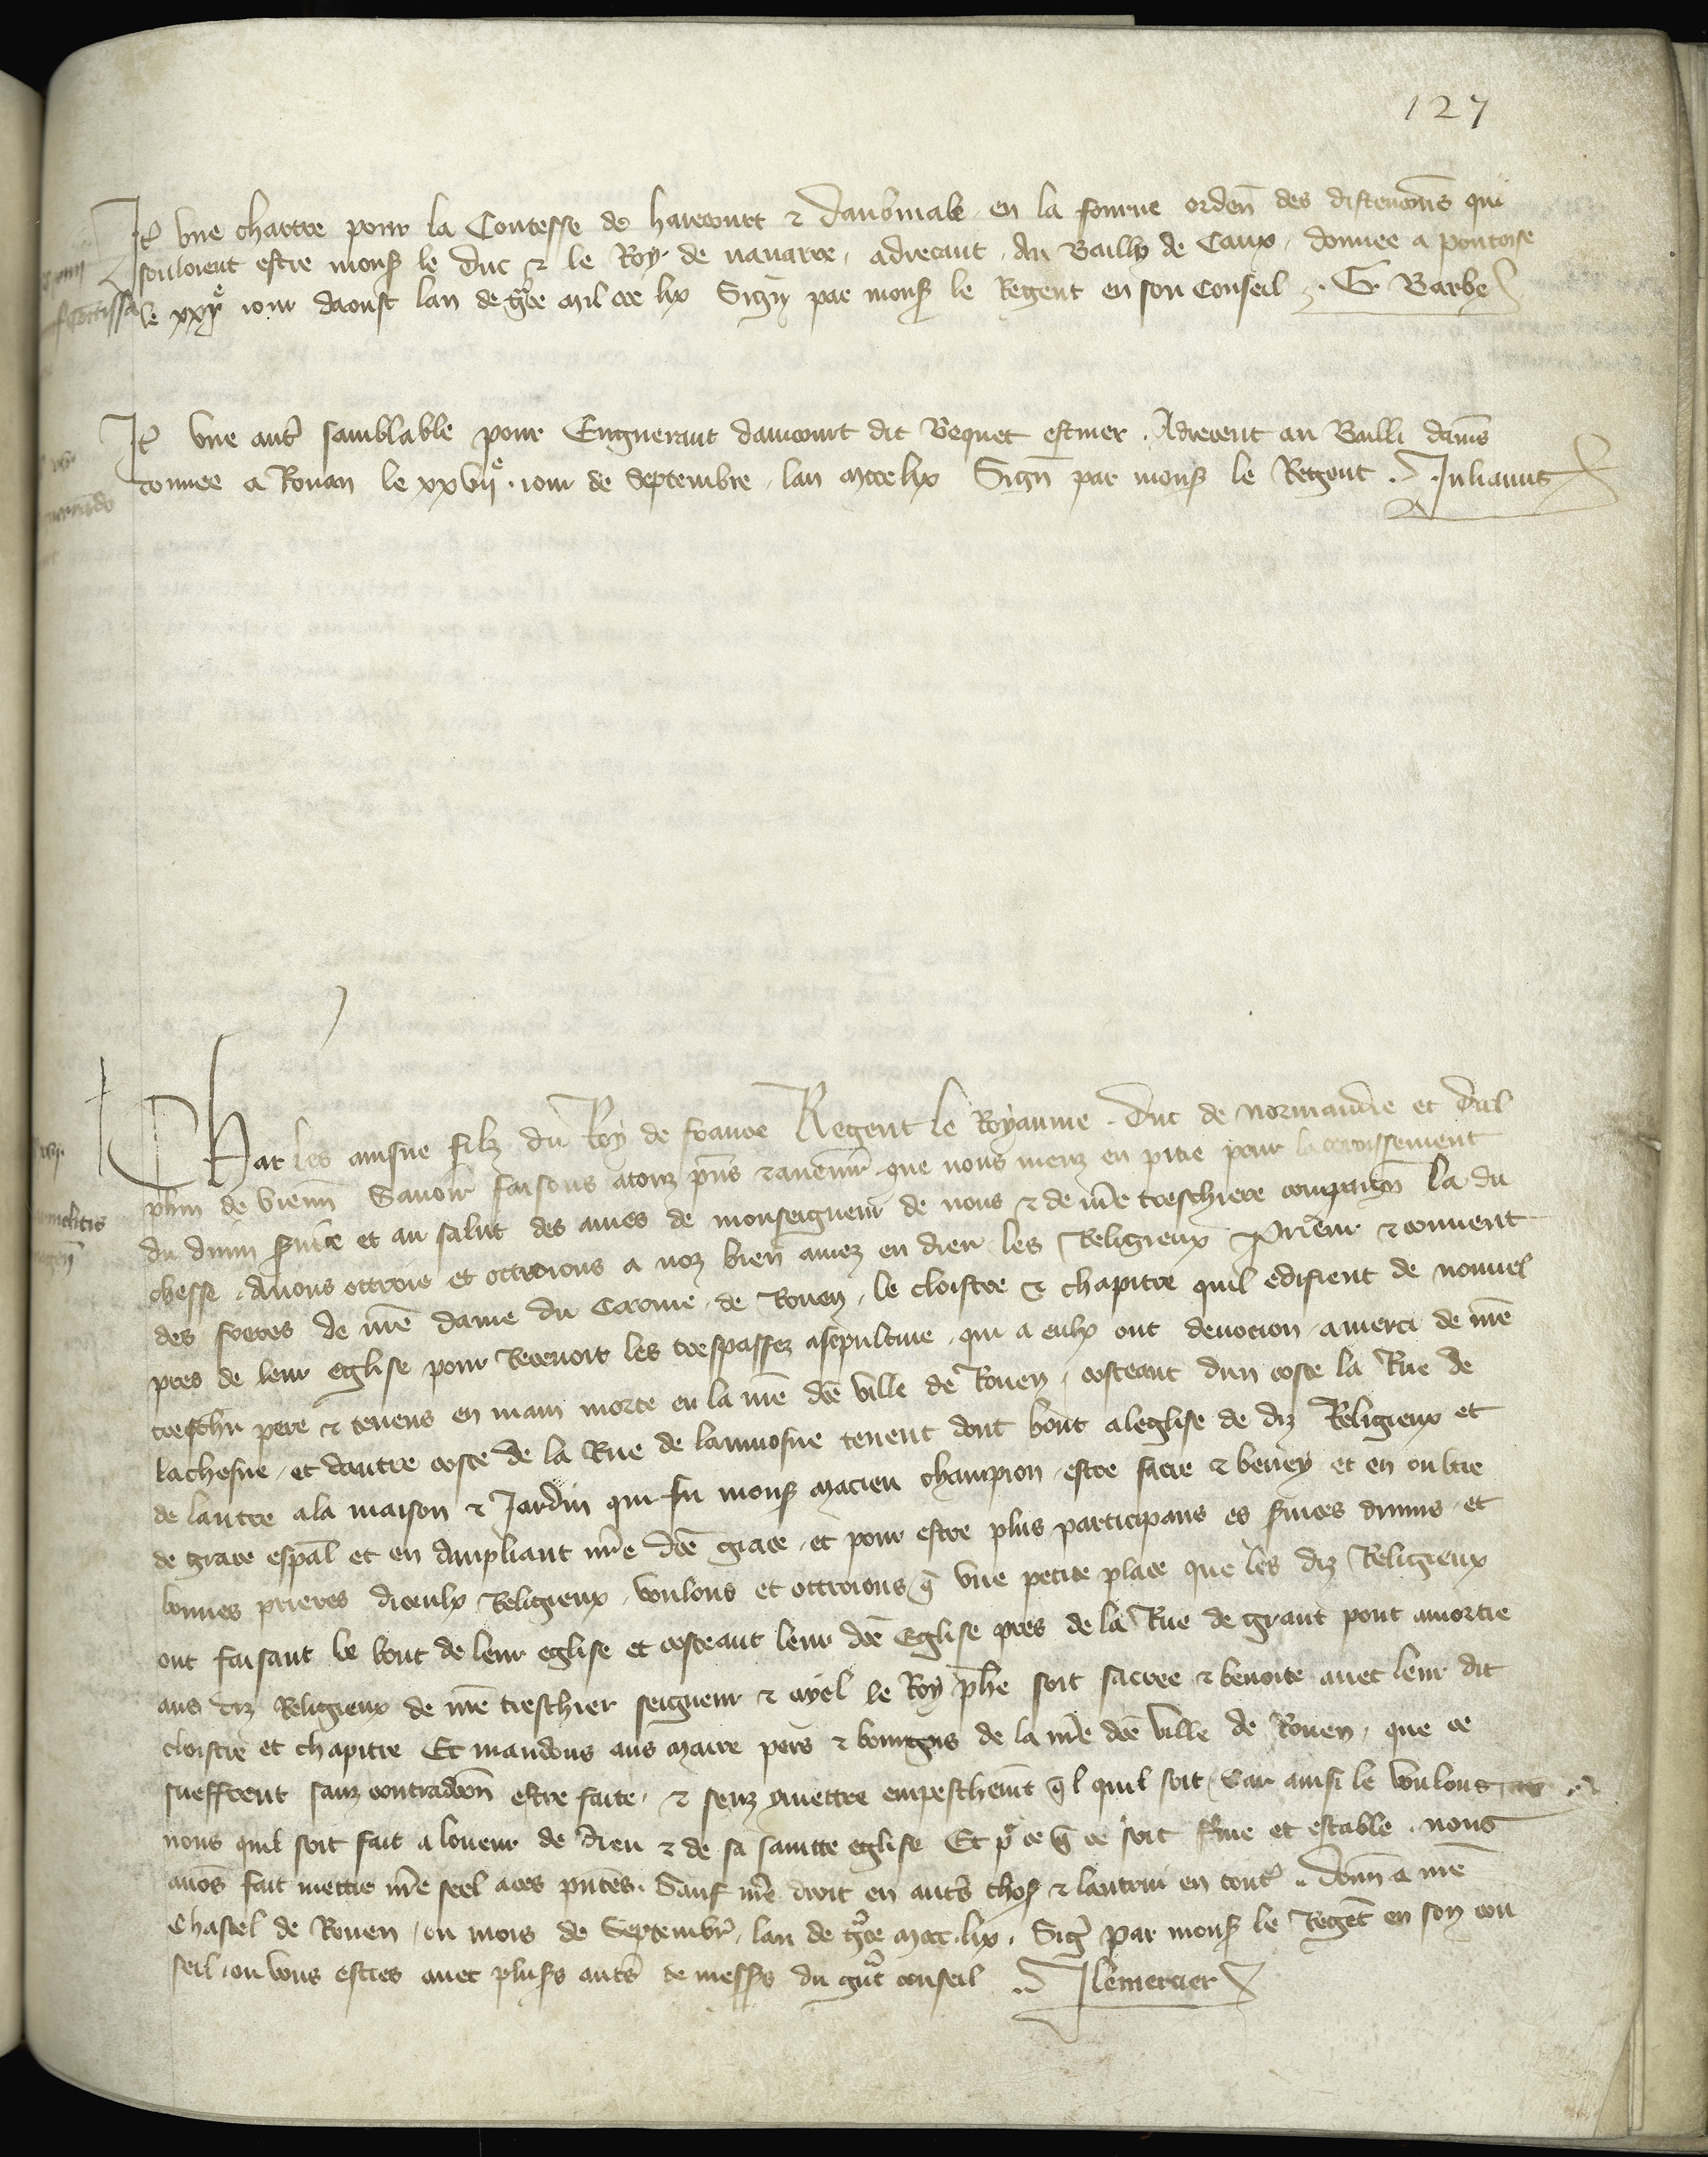 127
It͂ vne chartre pour la Contesse de harecourt ⁊ daubmale en la fourme ordeñ des dissencions qui
souloient estre monsr le duc ⁊ le Roy de nauarre, adrecant Au Bailly de Caux, donnee a pontoise
le xxxe iour daoust lan de gͣce mil ccc lix Signe par monsr le Regent en son Conseil . G Barbe
It͂ vne autr̃ samblable pour Engnerant dancourt dit Bequet escuier . Adrecent au Bailli damiẽs
donnee a Rouan le xxviie iour de Septembre, lan mccclix Signe par monsr le Regent . Julianus
Charles ainsne filz du Roy de france Regent le Royaume . Duc de normandie et dal
phin de vienñ Sauoir faisons atouz p̃ns ⁊ auenir que nous meuz en pitie pour lacroissement
du diuin s̃uice et au salut des ames de monseigneur de nous ⁊ de nr̃e treschiere compaign̄ la du
chesse . Auons ottroie et ottroions a noz bien amez en dieu les Religieux Prieur ⁊ conuent
des freres de nr̃e dame du Carme de Rouen, le cloistre ⁊ chapitre quil edifient de nouuel
pres de leur eglise pour Receuoir les trespassez asepulture, qui a eulx ont deuocion, amorti de nr̃e
treschr̃ pere ⁊ tenens en main morte en la nr̃e dc̃e ville de Rouen, costeant dun coste la Rue de
lachesne, et dautre coste de la Rue de laumosne tenent dont bout aleglise de diz Religieux et
de lautre ala maison ⁊ Jardin qui fu monsr macieu champion, estre sacre ⁊ beney et en oultre
de grace esp̃al et en Ampliant nr̃e dc̃e grace, et pour estre plus participans es s̃uices diuins, et
bonnes prieres diceulx Religieux, voulons et ottroions q̃ vne petite place que les diz Religieux
ont faisant le bout de leur eglise et costeant leur dc̃e Eglise pres de la Rue de grant pont amortie
aus diz Religieux de nr̃e treschier seigneur ⁊ ayel le Roy ph̃e soit sacree ⁊ benoite auec leur dit
cloistre et chapitre Et mandons aus maire pers ⁊ bourgois de la nr̃e dc̃e ville de Rouen, que ce
suefferent sanz contradc̃on estre faite, ⁊ senz ymettre empeschemt q̃l quil soit, Car ainsi le voulons
nous quil soit fait a loueur de dieu ⁊ de sa saincte eglise Et pͬ ce q̃ ce soit ferme et estable . nous
auõs fait mettre nr̃e seel aces p̃ntes. Sauf nr̃e droit en autr̃s chosˀ ⁊ lautrui en tout̃ . Donn̄ a nr̃e
Chastel de Rouen, ou mois de Septembr̃, lan de gͣce mccc.lix. Sigñ Par monsr le Reget̃ en son con
seil, ou vous esties auec plusˀs autr̃s de messˀs du gͣnt conseil . J lemercier